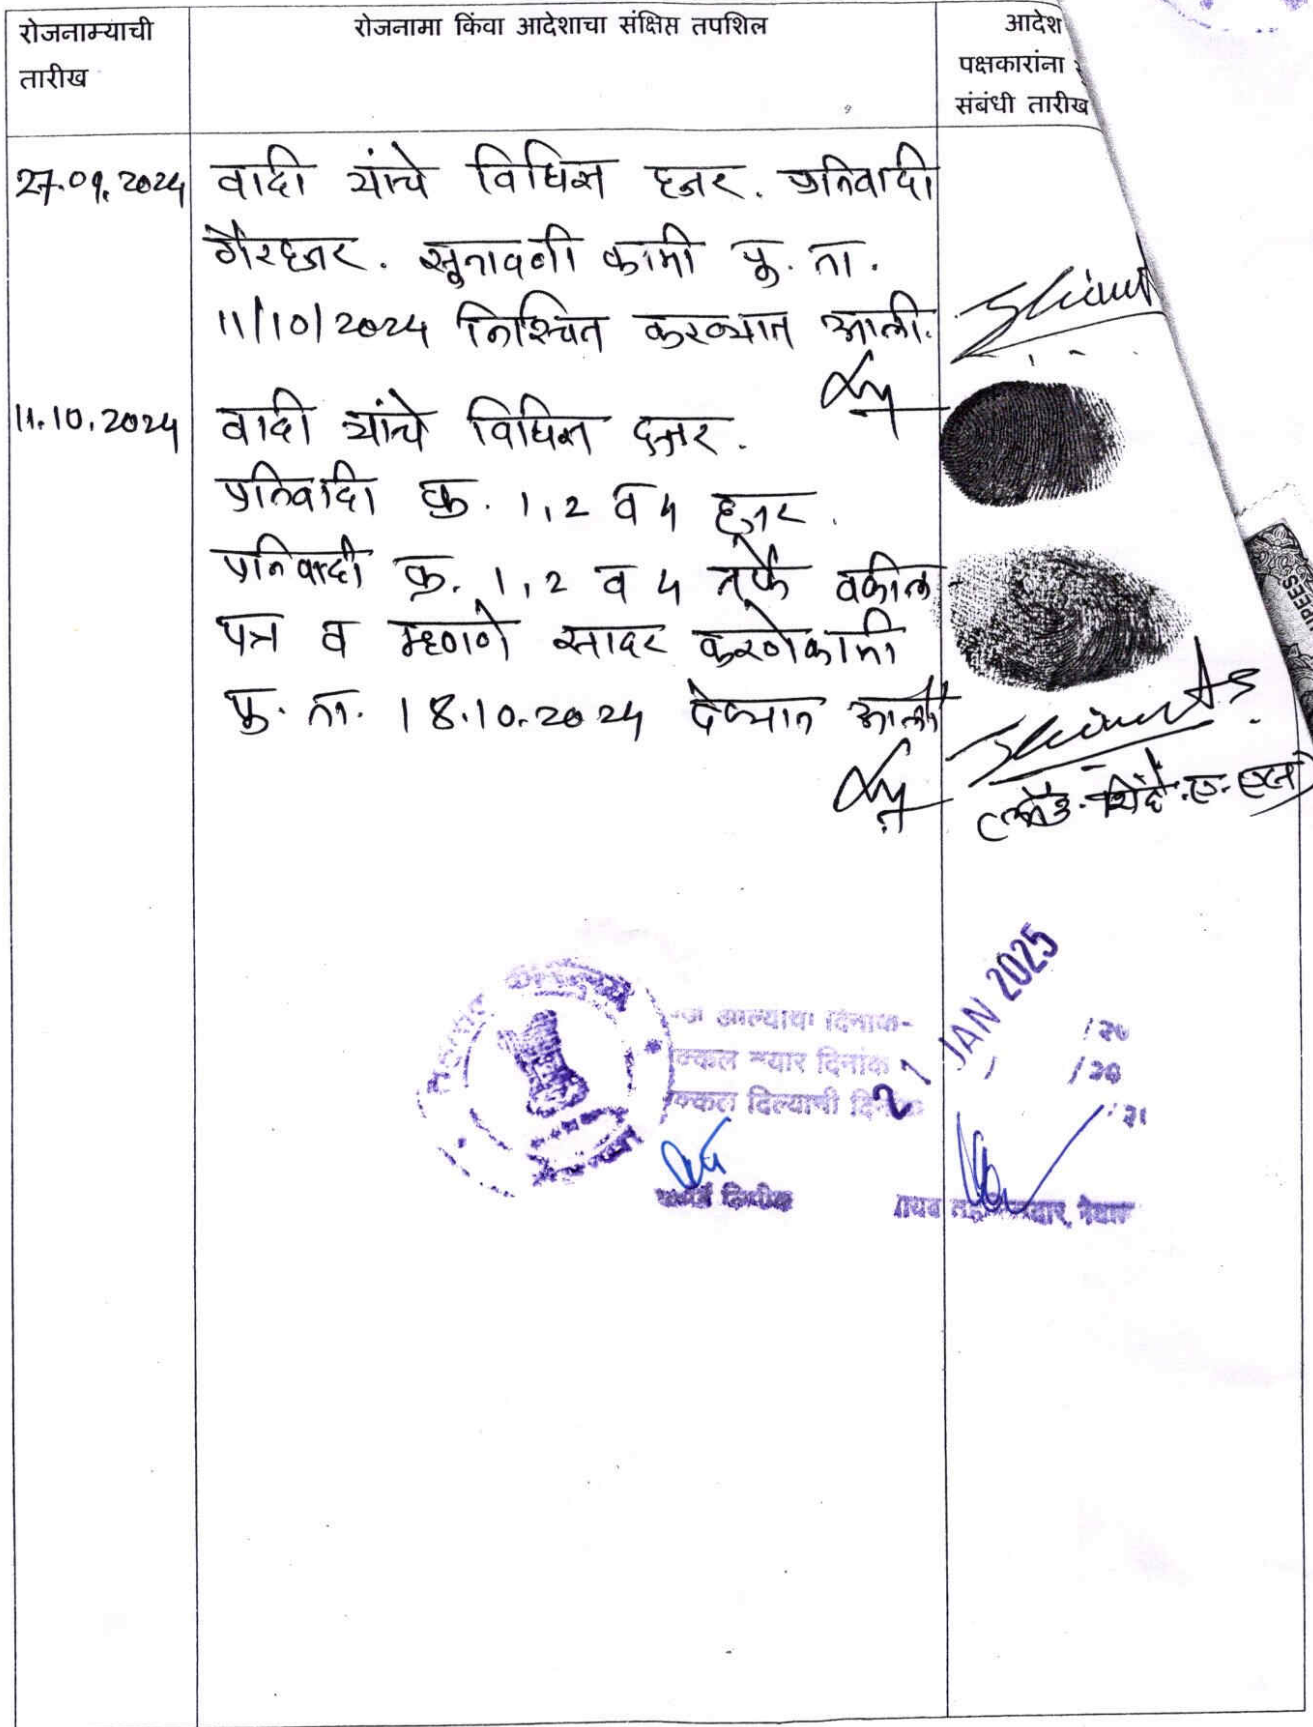 रोजनाम्याची
तारीख
रोजनामा किंवा आदेशाचा संक्षिप्त तपशिल
आदेश
पक्षकारांना
संबंधी तारीख
27.09.2024 वादी यांचे विधिज्ञ हजर. प्रतिवादी
गैरहजर. सूनावणी कामी पु. ता.
11/10/2024 निश्चित करण्यात आली.
11.10.2024 वादी यांचे विधिज्ञ हजर.
प्रतिवादी क्र. 1,2 व 4 हजर.
प्रतिवादी क्र. 1,2 व 4 तर्फे वकील
पत्र व म्हणणे सादर करणेकामी
पु. ता. 18.10.2024 देण्यात आली
आल्याचा दिनांक- /२०
नक्कल तयार दिनांक /२०
नक्कल दिल्याची दिनांक
21 JAN 2025
नायब तहसिलदार, नेवासा